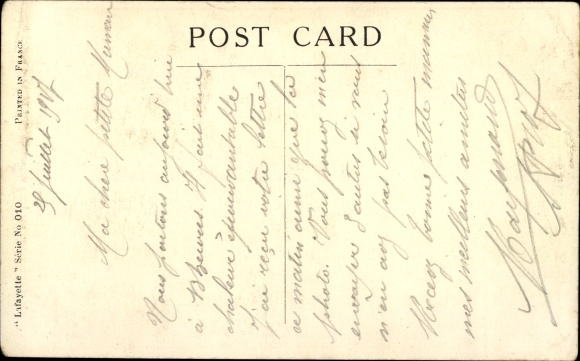 POST CARD
PRINTED IN FRANCE
"Lafayette" Série No 010
29 Juillet 1917
Ma chère petite Maman
Nous partons aujourd'hui
à Il fait une
chaleur épouvantable
J'ai reçu votre lettre
ce matin ainsi que la
photo. Vous pouvez m'en
envoyer d'autres si vous
n'en avez pas besoin
Recevez bonne petite maman
mes meilleurs amitiés